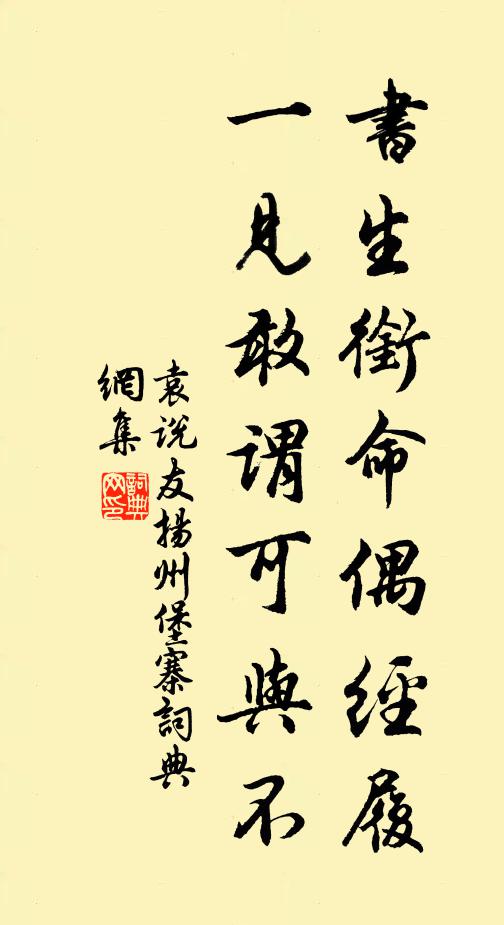 書生銜命偶經履
一見敢謂可與不
袁说友揚州堡寨詞典
網集
詞典
网印